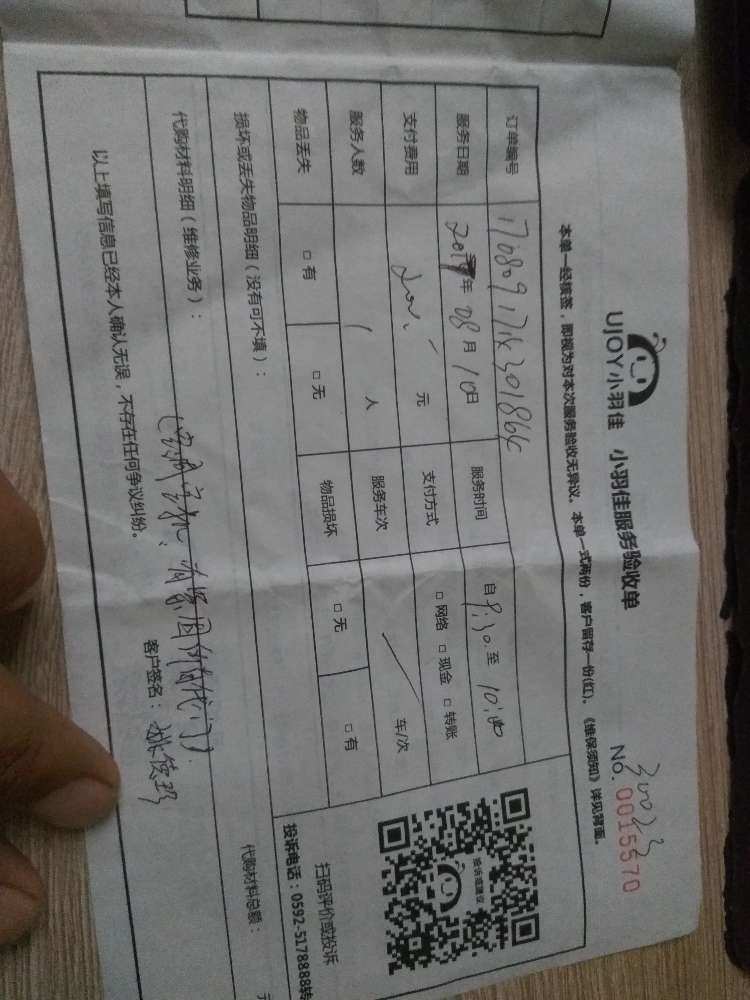 UJOY小羽佳 小羽佳服务验收单
No. 0015570
30023
本单一经核签，即视为对本次服务验收无异议。本单一式两份，客户留存一份(红)。《维保须知》详见背面。
订单编号
服务日期 2017年 08月 10日 服务时间 自 9:30 至 10:40
支付费用 元 支付方式 □ 网络 □ 现金 □ 转账
服务人数 1 人 服务车次 车/次
物品丢失 □ 有 □ 无 物品损坏 □ 无 □ 有
投诉或建议
扫码评价或投诉
投诉电话：0592-5178888转
损坏或丢失物品明细（没有可不填）：
代购材料明细（维修业务）：
代购材料总额： 元
以上填写信息已经本人确认无误，不存在任何争议纠纷。 客户签名：